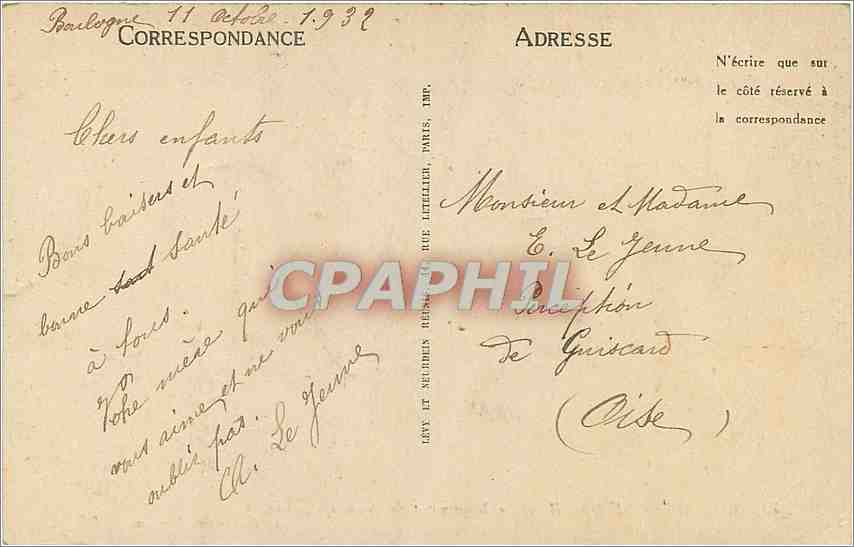 Boulogne 11 Octobre. 1.932
CORRESPONDANCE
Chers enfants
Bons baisers et
bonne santé
à tous.
Votre mère qui
vous aime et ne vous
oublie pas.
Ch. Le Jeune
LÉVY ET NEURDEIN RÉUNIS, 44, RUE LETELLIER, PARIS, IMP.
ADRESSE
N'écrire que sur
le côté réservé à
la correspondance
Monsieur et Madame
E. Le Jeune
Perception
de Guiscard
(Oise)
CPAPHIL